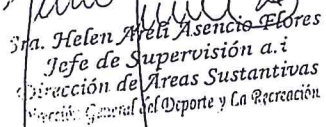 Sra. Helen Areli Asencio Flores
Jefe de Supervisión a.i
Dirección de Areas Sustantivas
Dirección General del Deporte y La Recreación